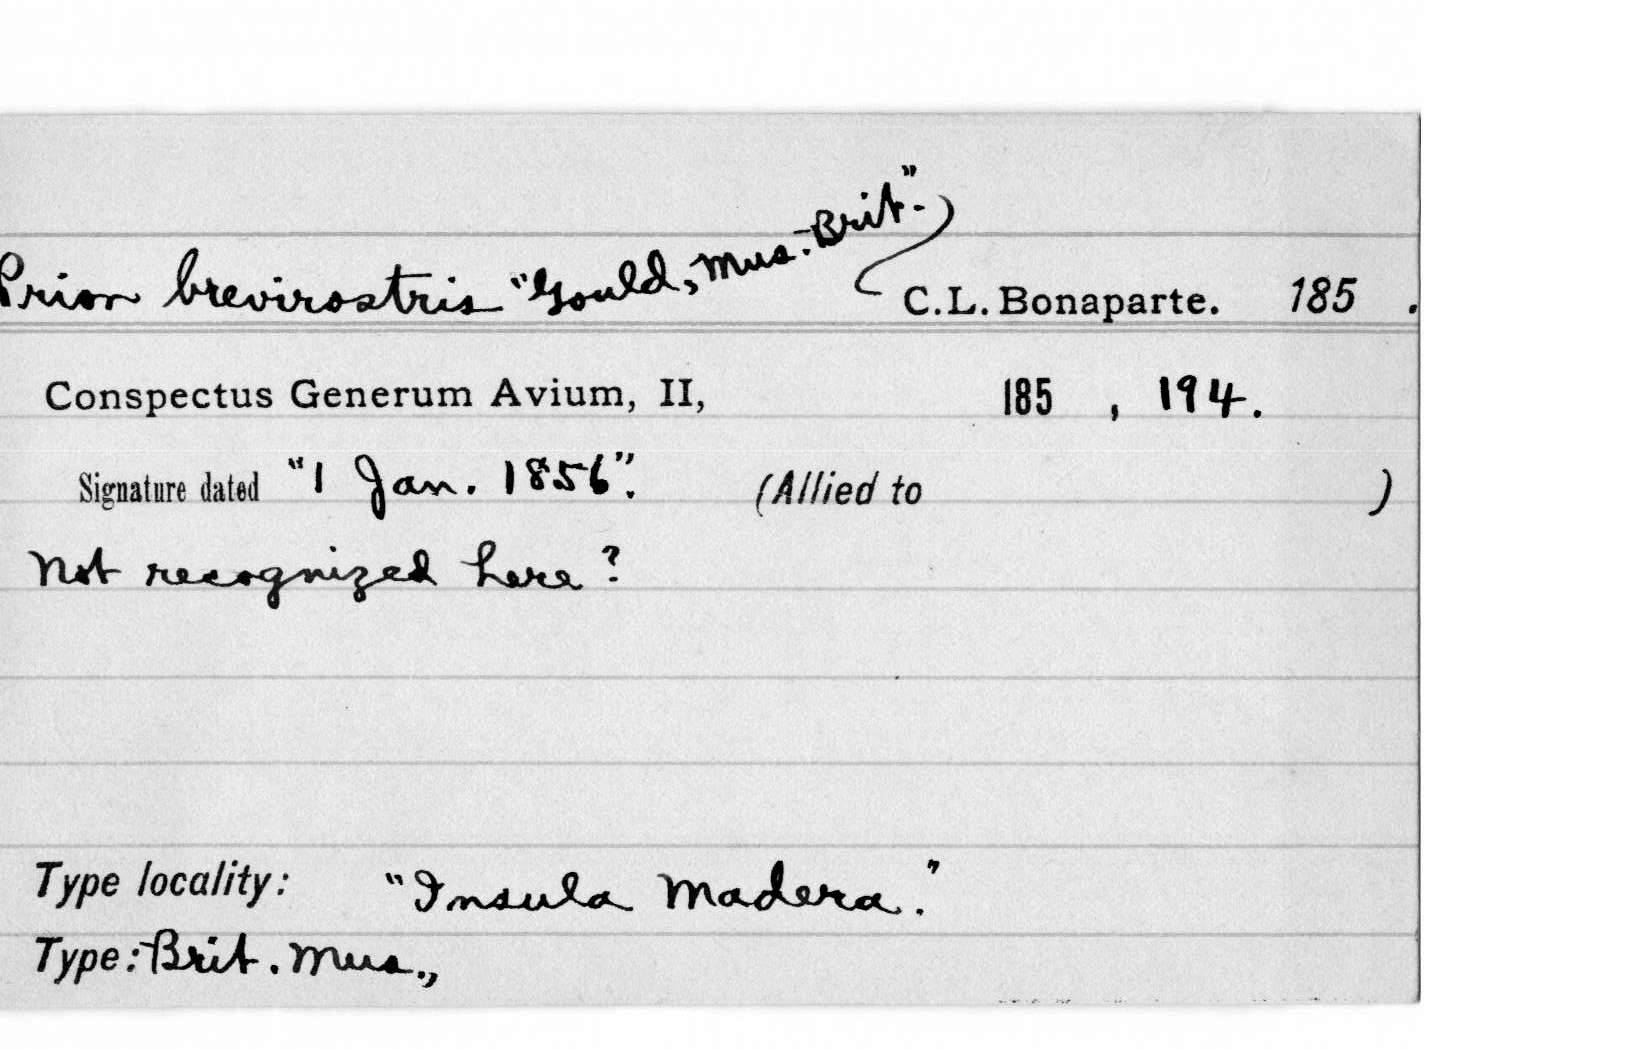 Prion brevirostris "Gould, Mus. Brit." C.L. Bonaparte. 185 .
Conspectus Generum Avium, II, 185 , 194.
Signature dated "1 Jan. 1856". (Allied to )
Not recognized here?
Type locality: "Insula Madera."
Type: Brit. Mus.,